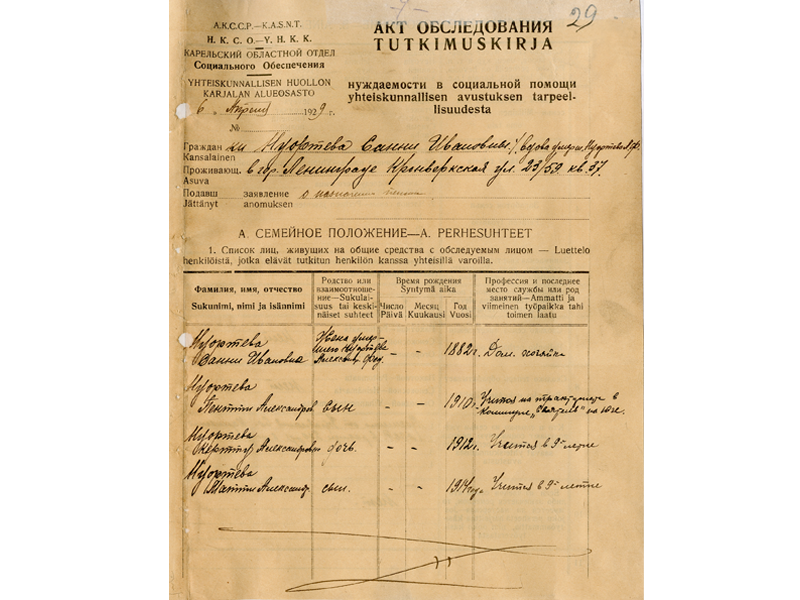 29
А.К.С.С.Р.—K.A.S.N.T.
Н. К. С. О.—Y. H. K. K.
КАРЕЛЬСКИЙ ОБЛАСТНОЙ ОТДЕЛ
Социального Обеспечения
YHTEISKUNNALLISEN HUOLLON
KARJALAN ALUEOSASTO
6 „ Апреля 1929 г.
№
АКТ ОБСЛЕДОВАНИЯ
TUTKIMUSKIRJA
нуждаемости в социальной помощи
yhteiskunnallisen avustuksen tarpeel-
lisuudesta
Граждан ки Нуортева Санни Ивановны, вдова умерш. Нуортева
Kansalainen
Проживающ. в гор. Ленинграде Кронверкская ул. 23/59 кв. 37.
Asuva
Подавш заявление о назначении пенсии
Jättänyt anomuksen
А. СЕМЕЙНОЕ ПОЛОЖЕНИЕ—A. PERHESUHTEET
1. Список лиц, живущих на общие средства с обследуемым лицом — Luettelo
henkilöistä, jotka elävät tutkitun henkilön kanssa yhteisillä varoilla.
Фамилия, имя, отчество
Sukunimi, nimi ja isännimi
Родство или
взаимоотноше-
ние—Sukulai-
suus tai keski-
näiset suhteet
Время рождения
Syntymä aika
Число
Päivä
Месяц
Kuukausi
Год
Vuosi
Профессия и последнее
место службы или род
занятий—Ammatti ja
viimeinen työpaikka tahi
toimen laatu
Нуортева
Санни Ивановна
Жена умер-
шего Нуортева
Александр. Фед.
- - 1882г. Дом. хозяйка
Нуортева
Пентти Александров сын - - 1910г. Учится на тракториста в
коммуне „Сеятель" на юге.
Нуортева
Керттту Александровна дочь. - - 1912г. Учится в 9-летке
Нуортева
Матти Александр. сын. - - 1914 году Учится в 9-летке